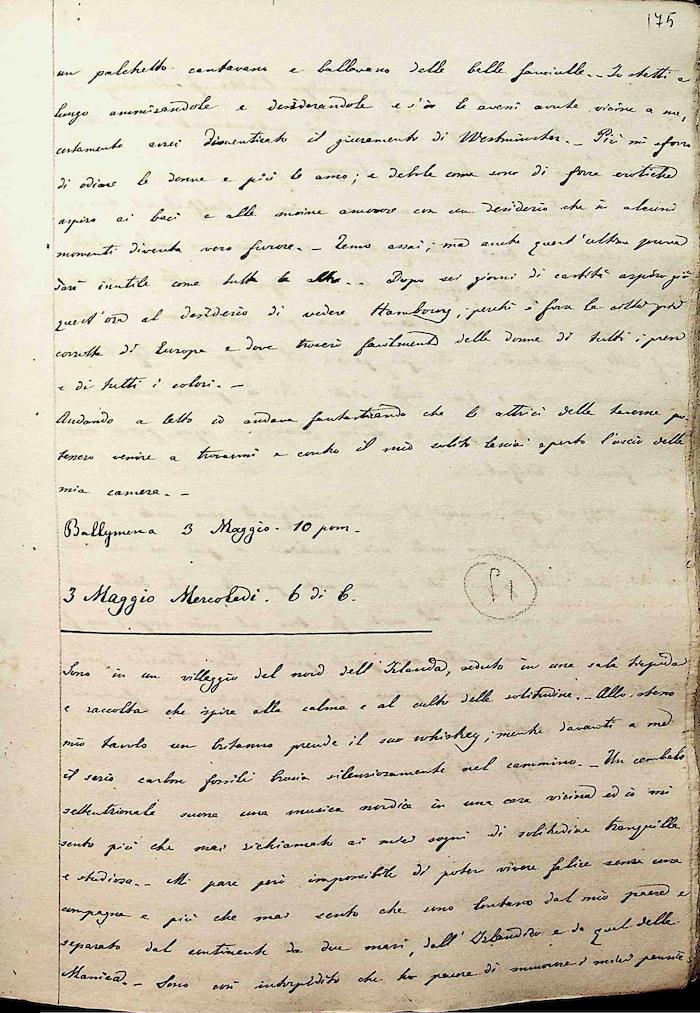 175
un palchetto cantavano e ballavano delle belle fanciulle. - Io stetti a
lungo ammirandole e desiderandole e s'io le avessi avute vicine a me,
certamente avrei dimenticato il giuramento di Westminster. - Più mi sforzo
di odiare le donne e più le amo; e debole come sono di forze erotiche
aspiro ai baci e alle moine amorose con un desiderio che in alcuni
momenti diventa vero furore. - Temo assai; ma anche quest'ultima prova
sarà inutile come tutte le altre. - Dopo sei giorni di castità aspiro già
quest'ora al desiderio di vedere Hambourg; perchè è forse la città più
corrotta di Europa e dove troverò facilmente delle donne di tutti i paesi
e di tutti i colori. -
Andando a letto io andava fantasticando che le attrici delle taverne po-
tessero venire a trovarmi e contro il mio solito lasciai aperto l'uscio della
mia camera. -
Ballymena 3 Maggio - 10 pom -
3 Maggio Mercoledì. 6 di 6.
Sono in un villaggio del nord dell'Irlanda, seduto in una sala tiepida
e raccolta che ispira alla calma e al culto della solitudine. - Allo stesso
mio tavolo un britanno prende il suo whiskey; mentre davanti a me
il carbon fossile brucia silenziosamente nel cammino. - Un cembalo
settentrionale suona una musica nordica in una casa vicina ed io mi
sento più che mai richiamato ai miei sogni di solitudine tranquilla
e studiosa. - Mi pare però impossibile di poter vivere felice senza una
compagna e più che mai sento che sono lontano dal mio paese e
separato dal continente da due mari, dall'Irlandese e da quel della
Manica. - Sono così intorpidito che ho paura di muovere i miei pensie-